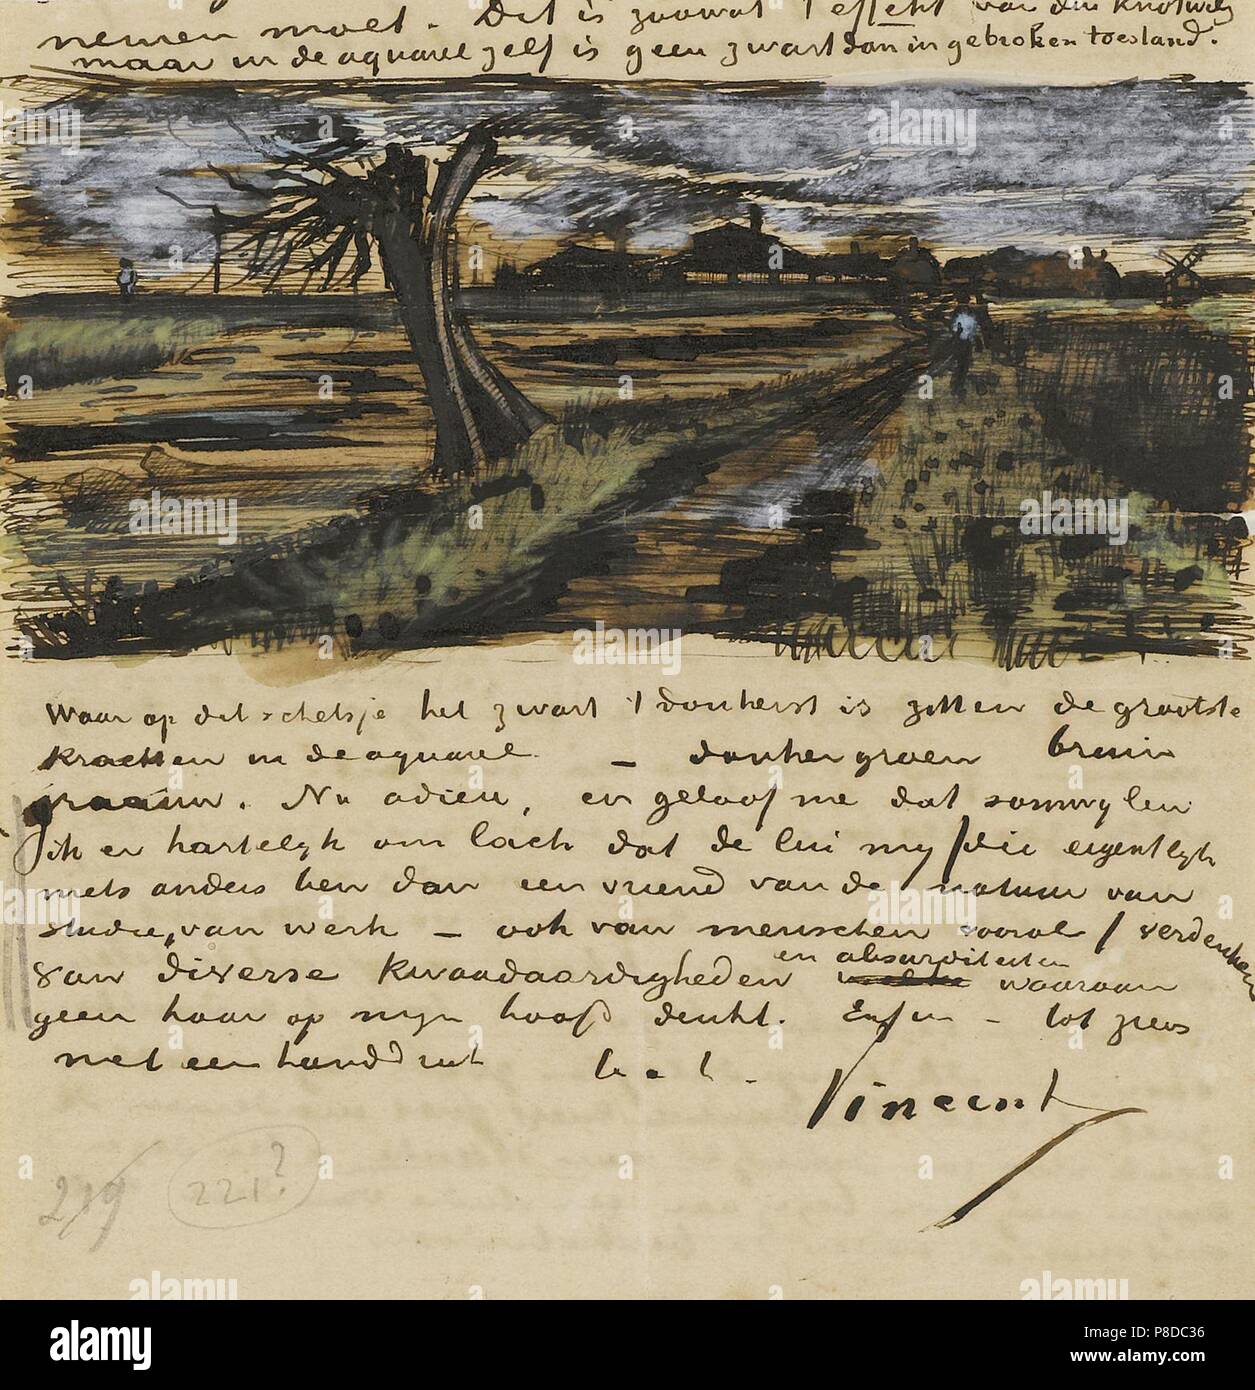 nemen moet. Dit is zoowat 't effekt van den knotwilg
maar in de aquarel zelf is geen zwart dan in gebroken toestand.
Waar op dit schetsje het zwart 't donkerst is zitten de grootste
krachten in de aquarel – donkergroen bruin
graauw. Nu adieu, en geloof me dat somwijlen
ik er hartelijk om lach dat de lui mij /die eigentlijk
niets anders ben dan een vriend van de natuur van
studie, van werk – ook van menschen vooral/ verdenken
en absurditeiten
van diverse kwaadaardigheden waaraan
geen haar op mijn hoofd denkt. Enfin – tot ziens
met een handdruk
Vincent
219 221?
alamy stock photo
P8DC36
www.alamy.com